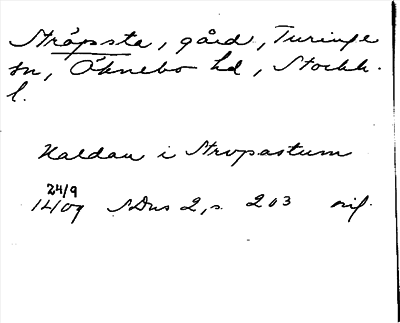 Stråpsta, gård, Turinge
sn, Öknebo hd, Stockh.
l.
Haldan i Stropastum
24/9
1409 SDns 2, s. 203 orig.